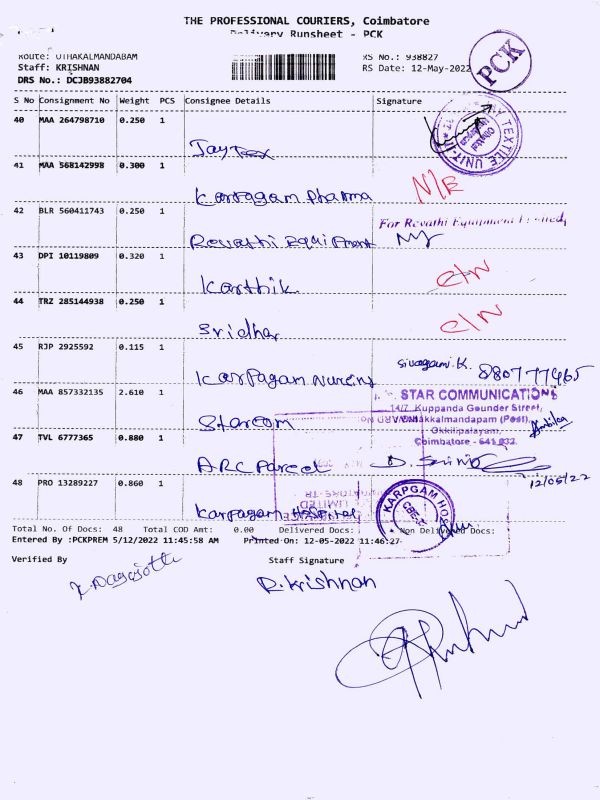 THE PROFESSIONAL COURIERS, Coimbatore
Delivery Runsheet - PCK
Route: OTHAKALMANDABAM
RS No.: 938827
PCK
Staff: KRISHNAN
RS Date: 12-May-2022
DRS No.: DCJB93882704
S No Consignment No Weight PCS Consignee Details Signature
40 MAA 264798710 0.250 1
Jay Tex
TEXTILE UNIT-II
41 MAA 568142998 0.300 1
Karpagam Pharma
42 BLR 560411743 0.250 1
For Revathi Equipment Limited,
Revathi Equipment
43 DPI 10119809 0.320 1
Karthik
44 TRZ 285144938 0.250 1
Sridhar
45 RJP 2925592 0.115 1
Sivagami.K.
Karpagam Nursing
46 MAA 857332135 2.610 1
STAR COMMUNICATIONS
14/7, Kuppanda Gounder Street,
Othakkalmandapam (Post),
Starcom
Okkilipalayam,
47 TVL 6777365 0.880 1
Coimbatore - 641 032.
ARC Parcel
12/05/22
48 PRO 13289227 0.860 1
KARPGAM HOSPITAL
Karpagam Hospital
Total No. Of Docs: 48 Total COD Amt: 0.00 Delivered Docs: Non Delivered Docs:
Entered By :PCKPREM 5/12/2022 11:45:58 AM Printed On: 12-05-2022 11:46:27
Verified By Staff Signature
R. Krishnan